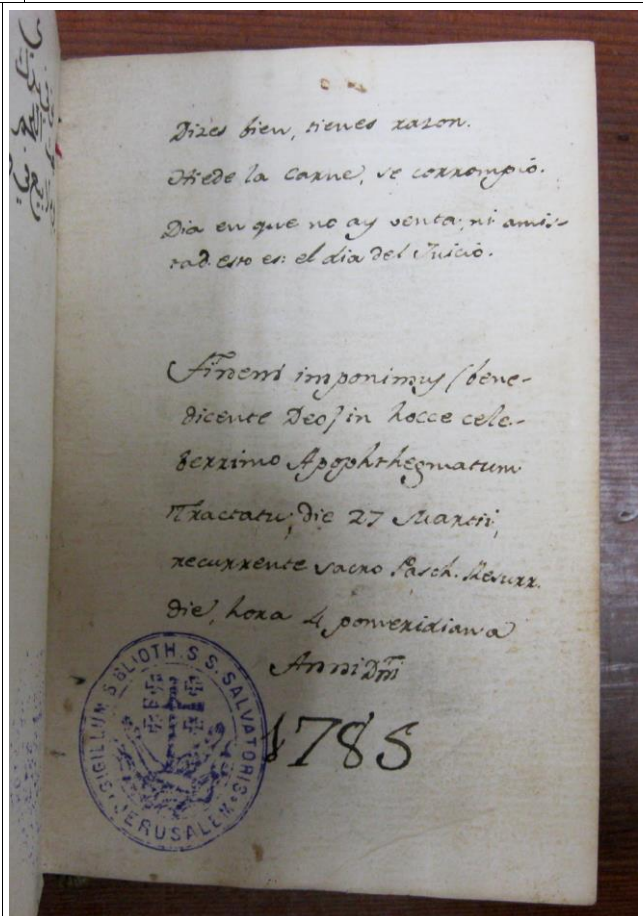 Dizes bien, tienes razon.
Hiede la carne, se corrompió.
Dia en que no ay venta, ni amis-
tad. esto es: el dia del Juicio.
Finem imponimus (bene-
dicente Deo) in hocce cele-
berrimo Apophthegmatum
Tractatu, die 27 Martii,
recurrente sacro Pasch. Resurr.
die, hora 4 pomeridiana
Anni Dñi
1785
SIGILLUM BIBLIOTH. S. S. SALVATORIS
JERUSALEM